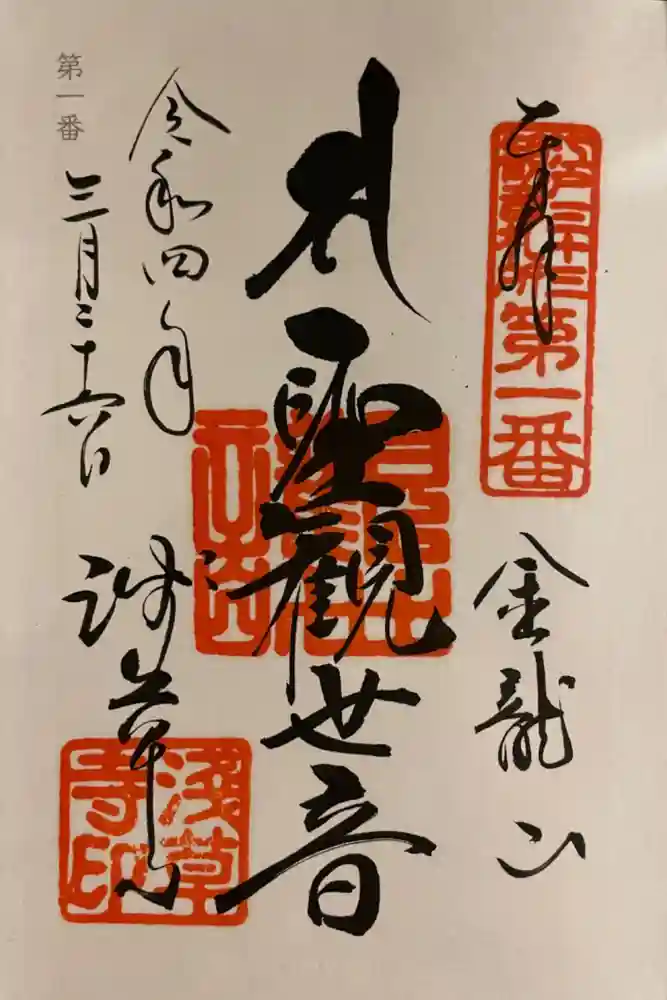 奉拝
第一番
金龍山
聖觀世音
令和四年
三月二十六日
第一番
浅草寺
淺草寺印